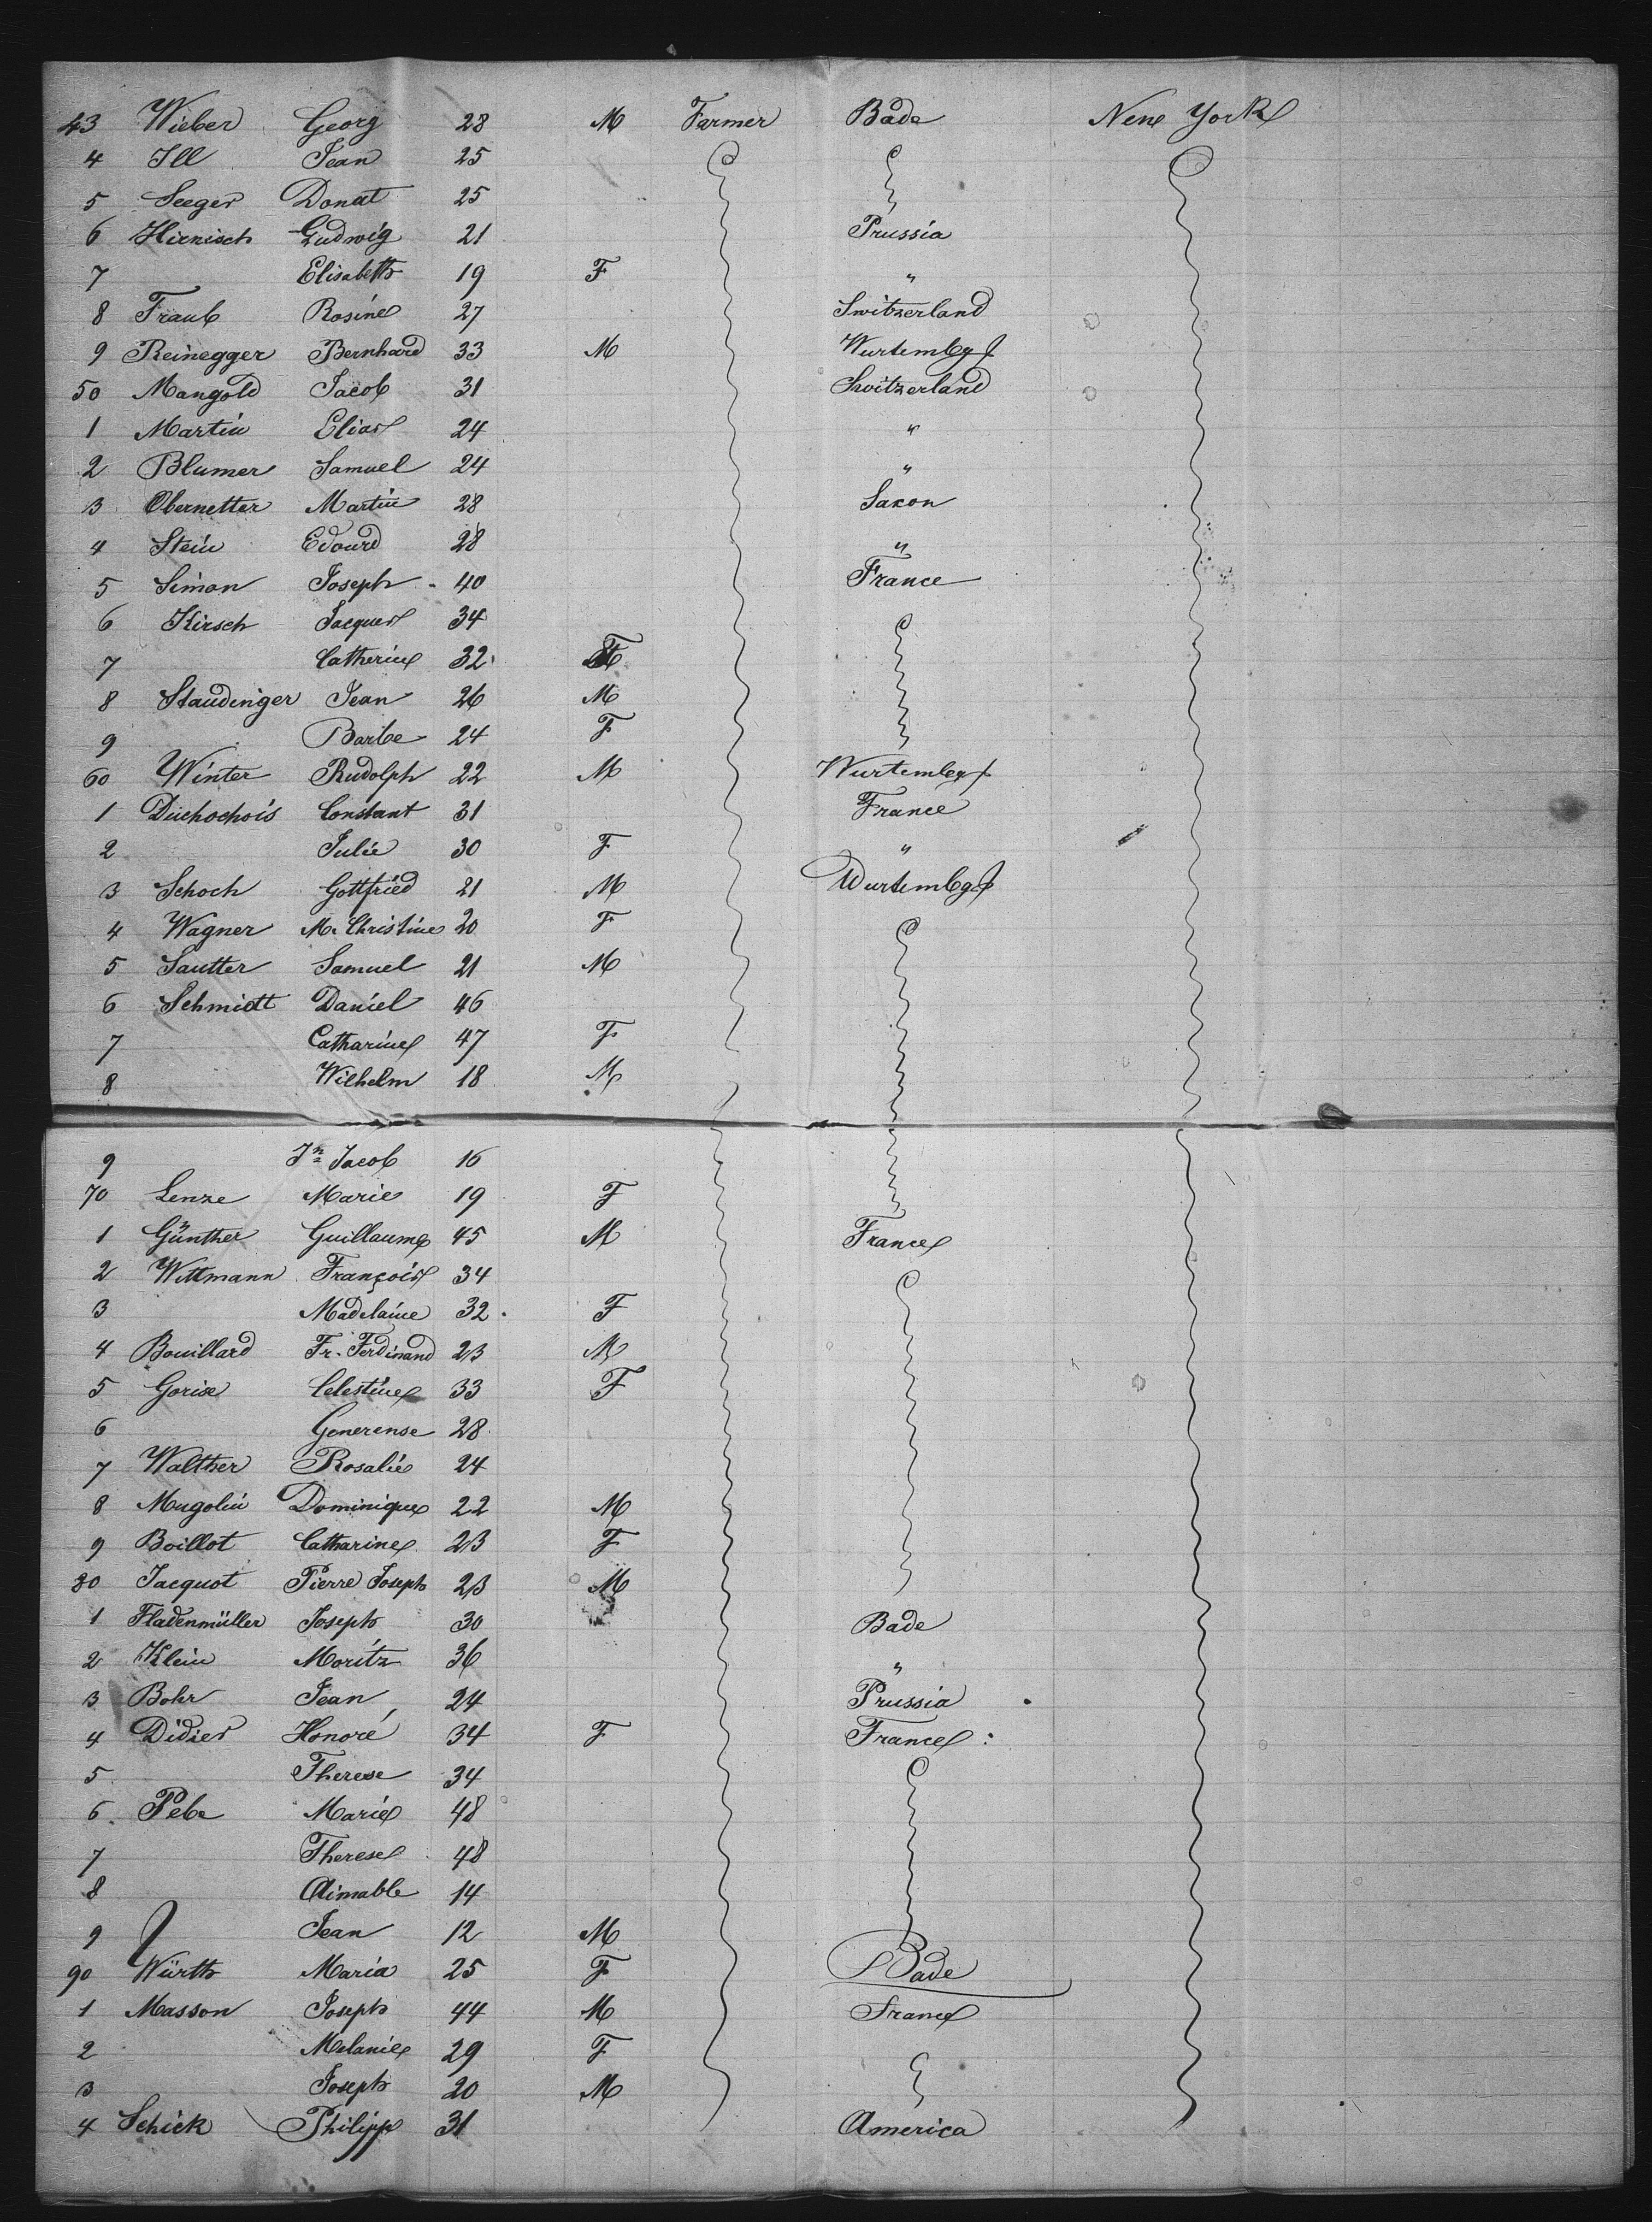 43 Wieber Georg 28 M Farmer Bade New York
4 Ill Jean 25
5 Seeger Donat 25
6 Hirnisch Ludwig 21 Prussia
7 Elisabeth 19 F "
8 Traub Rosine 27 Switzerland
9 Reinegger Bernhard 33 M Wurtembg
50 Mangold Jacob 31 Switzerland
1 Martin Elias 24 "
2 Blumer Samuel 24 "
3 Obernetter Martin 28 Saxon
4 Stein Edouard 28 "
5 Simon Joseph 40 France
6 Kirsch Jacques 34
7 Catherine 32 F
8 Staudinger Jean 26 M
9 Barbe 24 F
60 Winter Rudolph 22 M Wurtembg
1 Duchochois Constant 31 France
2 Julie 30 F "
3 Schoch Gottfried 21 M Wurtembg
4 Wagner M. Christine 20 F
5 Sautter Samuel 21 M
6 Schmidt Daniel 46
7 Catharine 47 F
8 Wilhelm 18 M
9 Jn Jacob 16
70 Lenze Marie 19 F
1 Günther Guillaume 45 M France
2 Wittmann François 34
3 Madelaine 32 F
4 Bouillard Fr. Ferdinand 23 M
5 Gorise Celestine 33 F
6 Generense 28
7 Walther Rosalie 24
8 Mugolin Dominique 22 M
9 Boillot Catharine 23 F
80 Jacquot Pierre Joseph 23 M
1 Fladenmüller Joseph 30 Bade
2 Klein Moritz 36 "
3 Bohr Jean 24 Prussia
4 Didier Honoré 34 F France
5 Therese 34
6 Pebe Marie 48
7 Therese 48
8 Aimable 14
9 Jean 12 M
90 Würth Maria 25 F Bade
1 Masson Joseph 44 M France
2 Melanie 29 F
3 Joseph 20 M
4 Schick Philipp 31 America